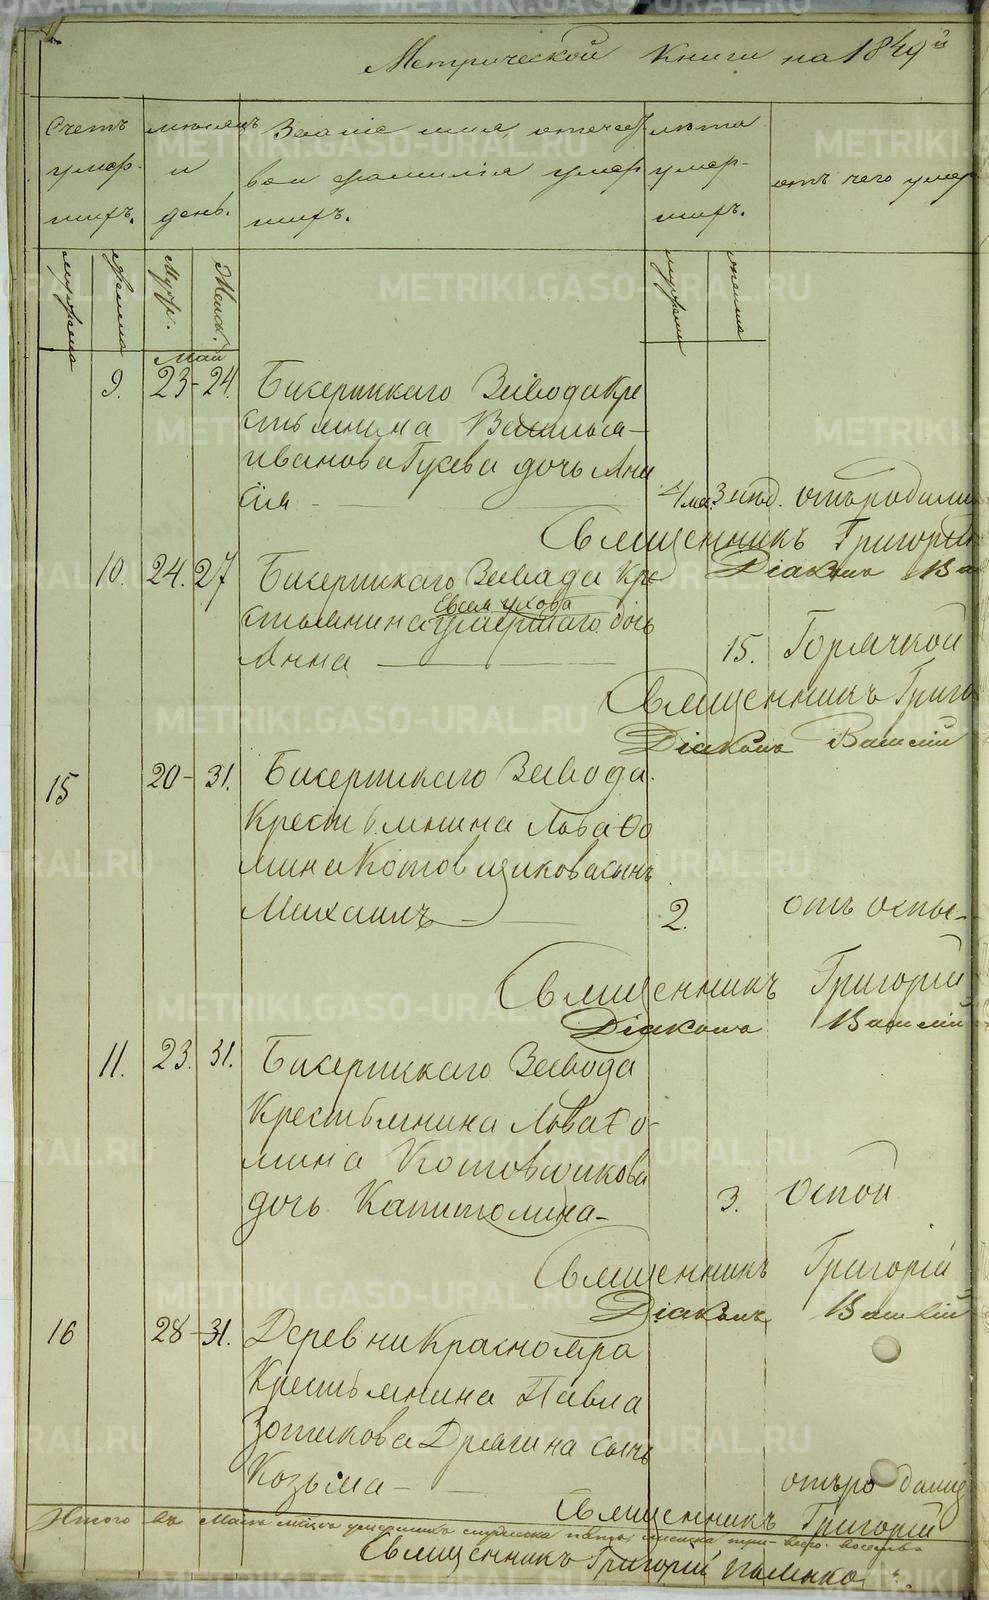 Метрической Книги на 1849й
Счетъ умер- шихъ.
месяцъ и день.
Званіе имя отечест во и фамилія умер шихъ.
лѣта умер- шихъ.
отъ чего умер
мужеска
женска
Муж.
Женск.
мужеска
женска
Май
9. 23-24. Бисертскаго Завода Кре
стьянина Василья
Иванова Гусева дочь Ани
сія 3 нед. отъ родими
Священникъ Григорій
Діаконъ Ва
10. 24. 27 Бисертскаго Завода Кре
стьянина умершаго дочь
Анна 15. Горячкой
Священникъ Григо
Діаконъ Василій
15 20-31. Бисертскаго Завода
Крестьянина Льва Фо
мина Котовщикова сынъ
Михаилъ 2. отъ оспы
Священникъ Григорій
Діаконъ Василій
11. 23. 31. Бисертскаго Завода
Крестьянина Льва Фо-
мина Котовщикова
дочь Капитолина 3. Оспой
Священникъ Григорій
Діаконъ Василій
16 28-31. Деревни Краснояра
Крестьянина Павла
Зотикова Дрягина сынъ
Козьма отъ родими
Священникъ Григорій
Итого въ Маѣ мѣсяцѣ умершихъ мужеска пять женска три всего восемь
Священникъ Григорій
METRIKI.GASO-URAL.RU